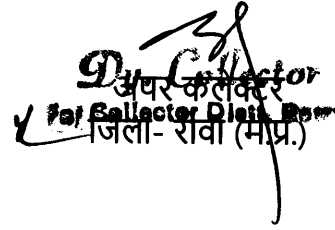 Dy. Collector
अपर कलेक्टर
For Collector Distt. Rewa
जिला- रीवा (म.प्र.)